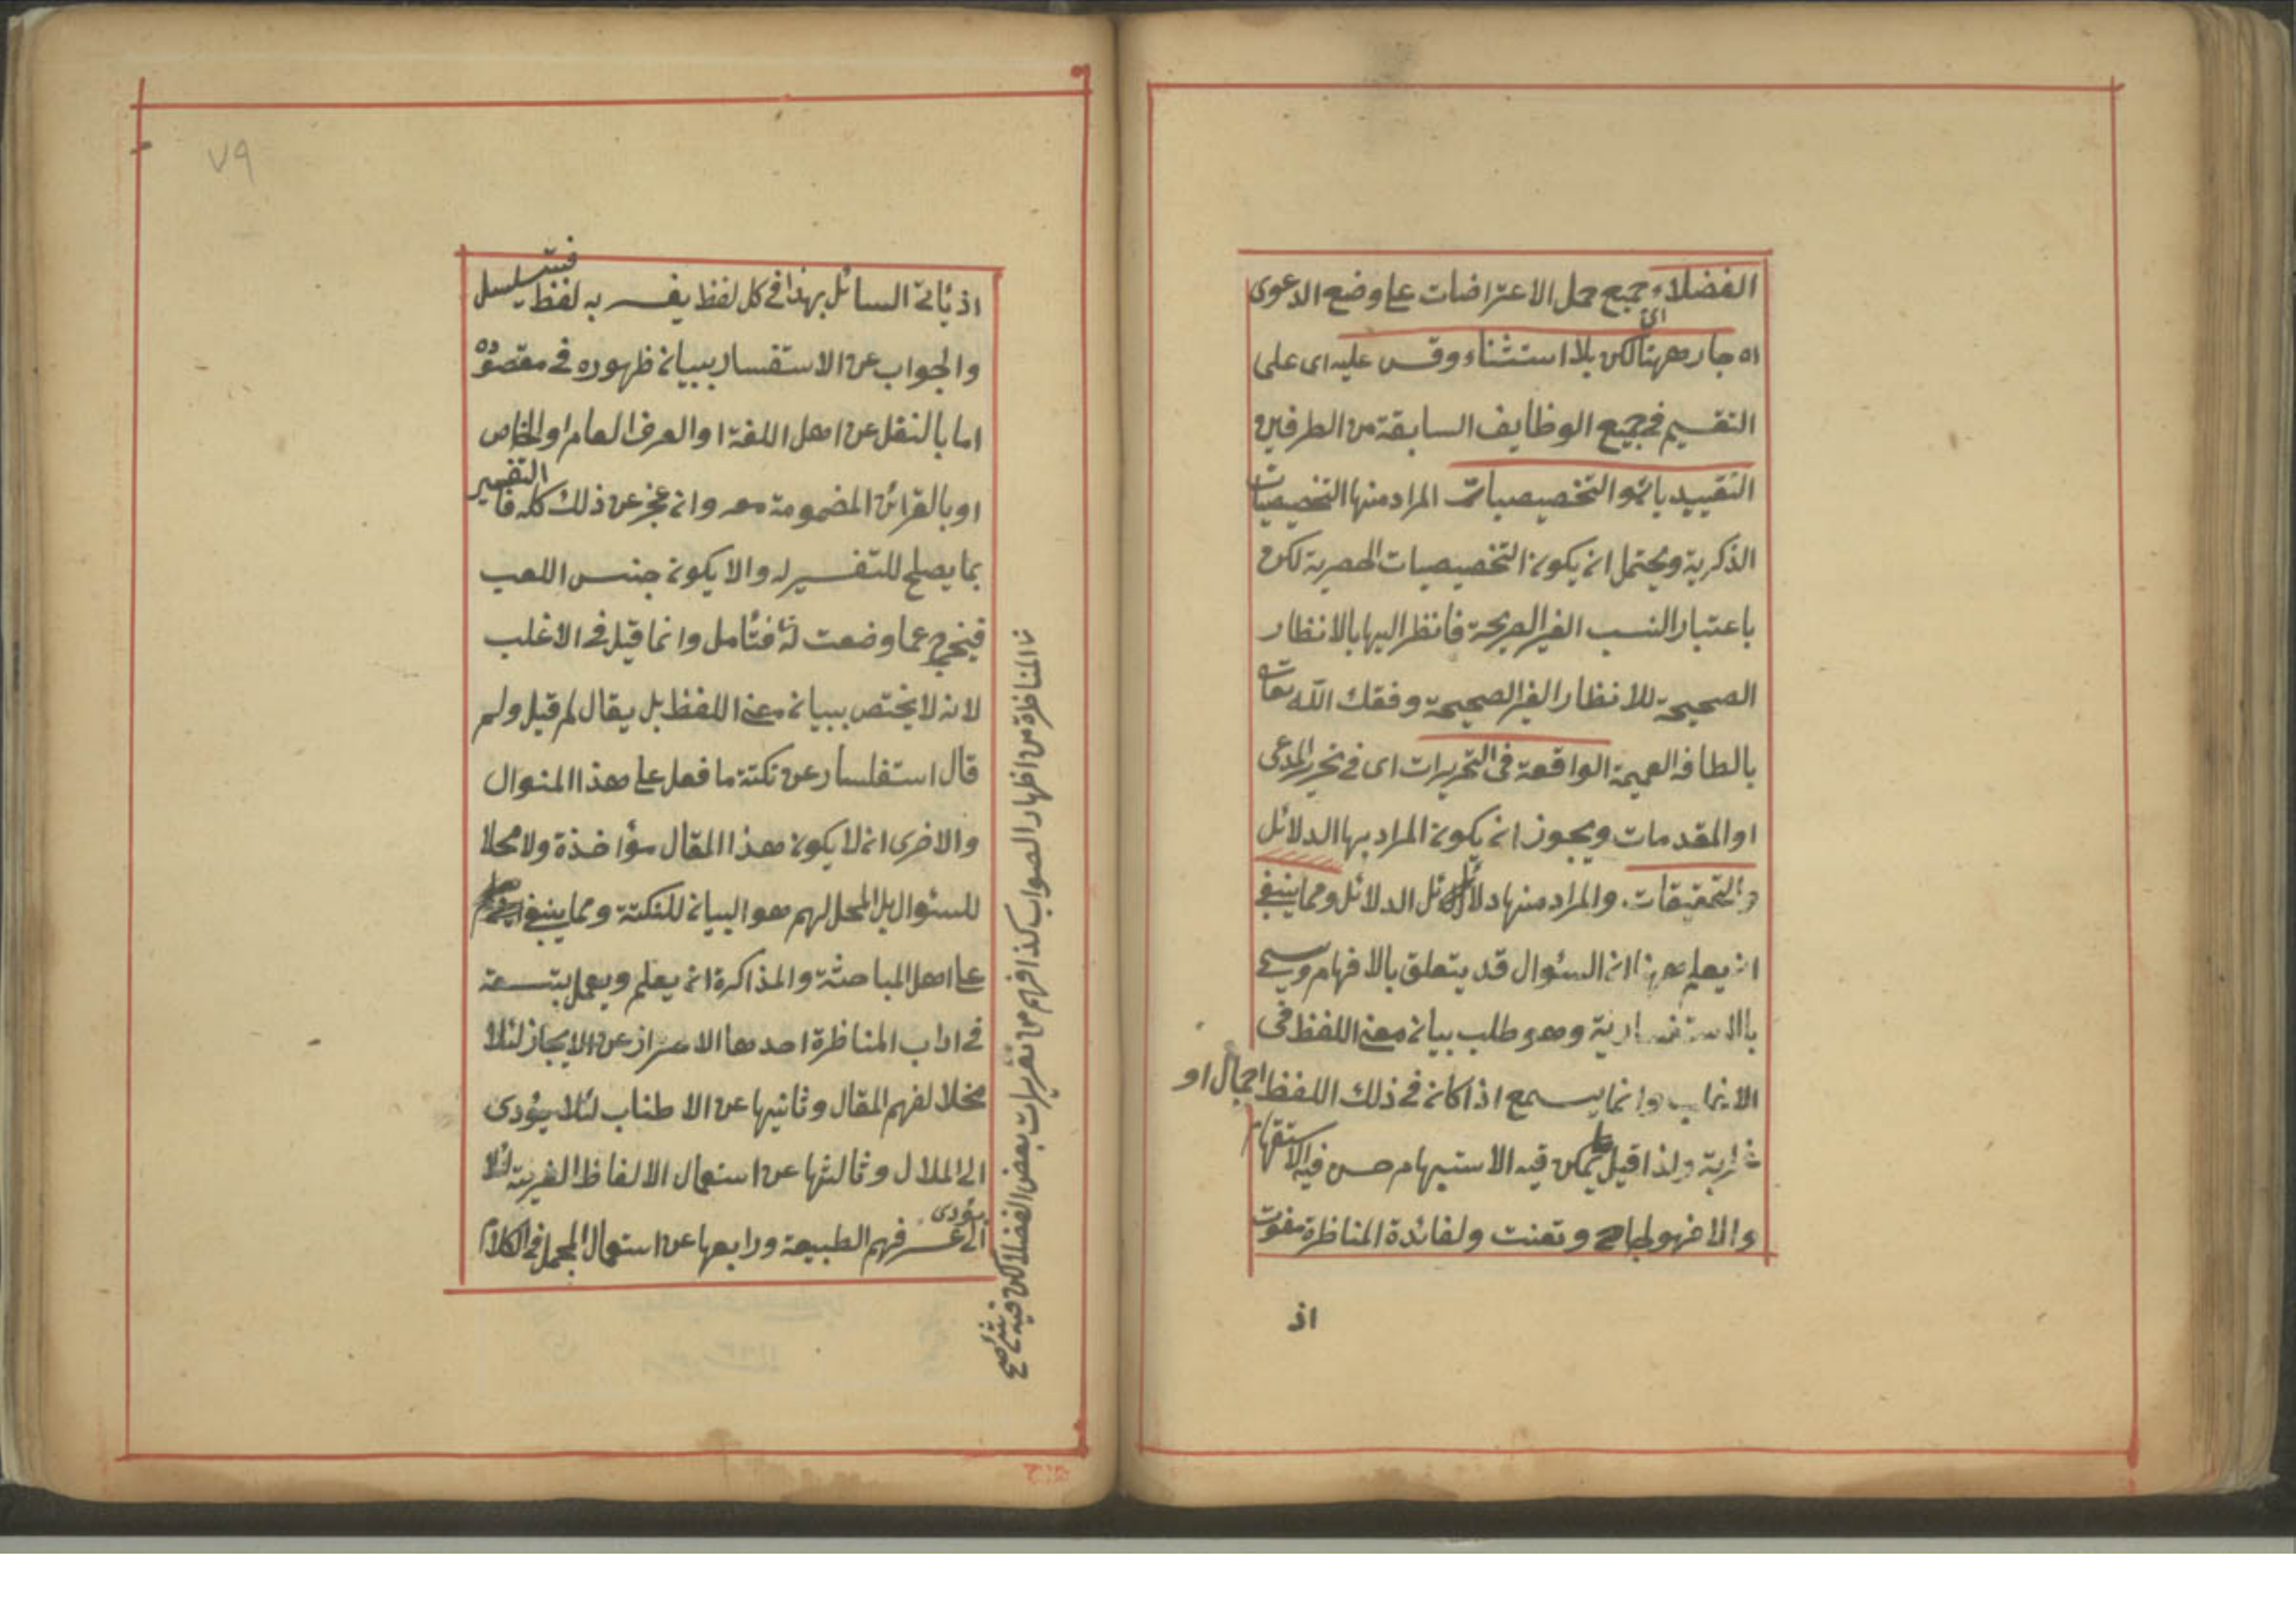 الفضلاء جميع حمل الاعتراضات على وضع الدعوى
اى
اه جار ههنا لكن بلا استثناء وقس عليه اى على
التقسيم فى جميع الوظايف السابقة من الطرفين
التقييد والتخصيصات المراد منها التخصيصات
الذكرية ويحتمل ان يكون التخصيصات الحصرية لكن
باعتبار النسب الغير الصريحة فانظر اليها بالانظار
الصحيحة للانظار الغير الصحيحة وفقك الله تعالى
بالطافه العميمة الواقعة فى التحريرات اى فى تحرير المدعى
او المقدمات ويجوز ان يكون المراد بها الدلائل
والتحقيقات والمراد منها دلائل الدلائل ومما ينبغى
ان يعلم ههنا ان السئوال قد يتعلق بالافهام ويسمى
بالاستفسارية وهو طلب بيان معنى اللفظ فى
الاغلب وانما يسمع اذا كان فى ذلك اللفظ اجمال او
غرابة ولذا قيل ما يمكن فيه الاستبهام حسن فيه الاستفهام
والا فهو لجاج وتعنت ولفائدة المناظرة مفوت
اذ
٧٩
اذ يأتى السائل بهذا فى كل لفظ يفسر به لفظ فيتسلسل
والجواب عن الاستفسار ببيان ظهوره فى مقصوده
اما بالنقل عن اهل اللغة او العرف العام او الخاص
او بالقرائن المضمومة معه وان عجز عن ذلك كله فالتفسير
بما يصلح للتفسير له والا يكون جنس اللعب
فيخرج عما وضعت له فتأمل وانما قيل فى الاغلب
لانه لا يختص ببيان معنى اللفظ بل يقال لم قيل ولم
قال استفلسار عن نكتة ما فعل على هذا المنوال
والاخرى ان لا يكون هذا المقال مؤاخذة ولا محلا
للسئوال بل المحل لهم هو البيان للنكتة ومما ينبغى
على اهل المباحثة والمذاكرة ان يعلم ويعمل بتسعة
فى اداب المناظرة احدها الاحتراز عن الايجاز لئلا
مخلا لفهم المقال وثانيها عن الاطناب لئلا يؤدى
الى الملال وثالثها عن استعمال الالفاظ الغريبة لئلا
يؤدى
الى عسر فهم الطبيعة ورابعها عن استعمال المجمل فى الكلام
المناظرة من اظهار الصواب كذا فهم من تقريرات بعض الفضلا لكن فيه